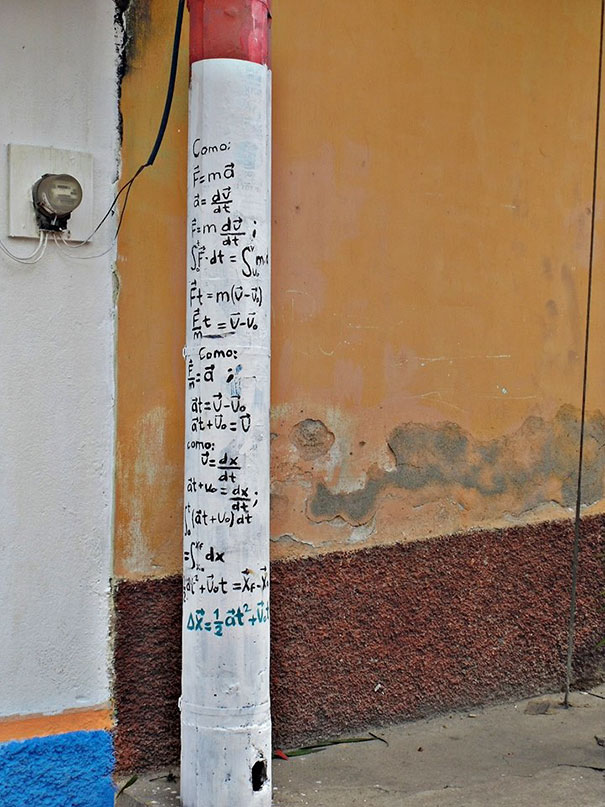 Como:
F⃗=ma⃗
a⃗=dv⃗/dt
F⃗=m dv⃗/dt ;
∫₀ᵗF⃗·dt = ∫ᵥ₀ᵛ m
F⃗t = m(v⃗-v⃗₀)
F⃗/m t = v⃗-v⃗₀
Como:
F⃗/m=a⃗ ;
a⃗t=v⃗-v⃗₀
a⃗t+v⃗₀=v⃗
como:
v⃗=dx/dt
a⃗t+v₀=dx/dt ;
∫₀ᵗ(a⃗t+v₀)dt
=∫dx
t²+v⃗₀t=x⃗f-x⃗
Δx⃗=½a⃗t²+v⃗₀t